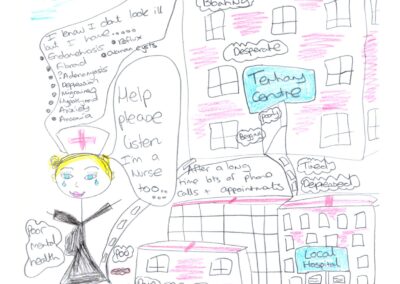 I know I dont look ill
but I have.....
Endometriosis
Reflux
Fibroid
Ovarian cysts
? Adenomyosis
Depression
Migraines
Anxiety
Anaemia
Help
please
listen
I'm a
Nurse
too...
Bloating
Desperate
Tertiary
Centre
Begging
After a long
time lots of phone
calls + appointments
Tired
Depressed
Poor
mental
health
Poo
Local
Hospital